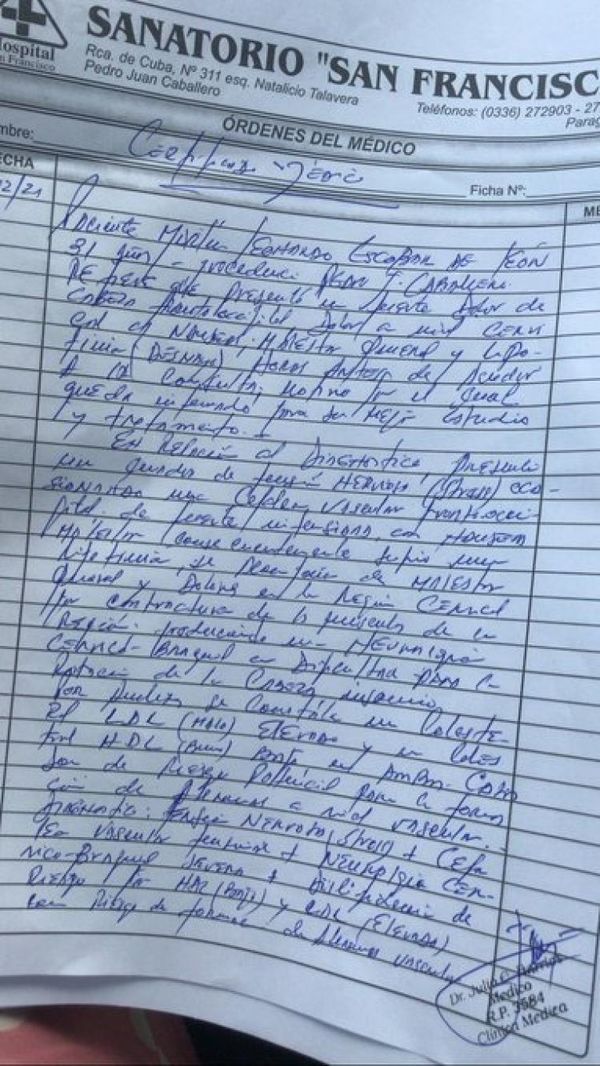 Hospital
San Francisco
SANATORIO "SAN FRANCISC
Rca. de Cuba, Nº 311 esq. Natalicio Talavera
Pedro Juan Caballero
Teléfonos: (0336) 272903 - 27
Parag
ÓRDENES DEL MÉDICO
mbre:
Ficha Nº:
ECHA
ME
Certificado Médico
12/21
Paciente Fernando Escobar de León
31 años - Pedro J. Caballero
Refiere que presentó un fuerte dolor de
cabeza dolor a nivel cervi
cal Nauseas, Malestar general y Lipo-
timia (Desmayo) Horas antes de acudir
a la consulta, motivo por el cual
queda internado para su mejor estudio
y tratamiento.
En relación al Diagnostico, presento
un cuadro de tensión nerviosa (stress) oca-
sionando una vascular
de fuerte intensidad, con Nauseas
Malestar consecuentemente sufrio una
Lipotimia, se de Malestar
General y Dolores en la Región Cervical
por contractura de los musculos de la
Región, produciendo una Neuralgia
Cervico-Braquial con Dificultad para la
Rotación de la Cabeza
Por se constata un Coleste-
rol LDL (Malo) Elevado y un Coles
terol HDL (Bueno) Bajo en ambos casos
son de Riesgo Potencial para la forma
ción de a nivel vascular.
Diagnostico: Tensión Nerviosa (stress) + Cefa
lea vascular tensional + Neuralgia Cer-
vico-Braquial severa + Dislipidemia de
Riesgo por HDL (Bajo) y LDL (Elevado)
con Riesgo de formación de vascular
Dr. Julio
Medico
R.P. 3584
Clínica Medica